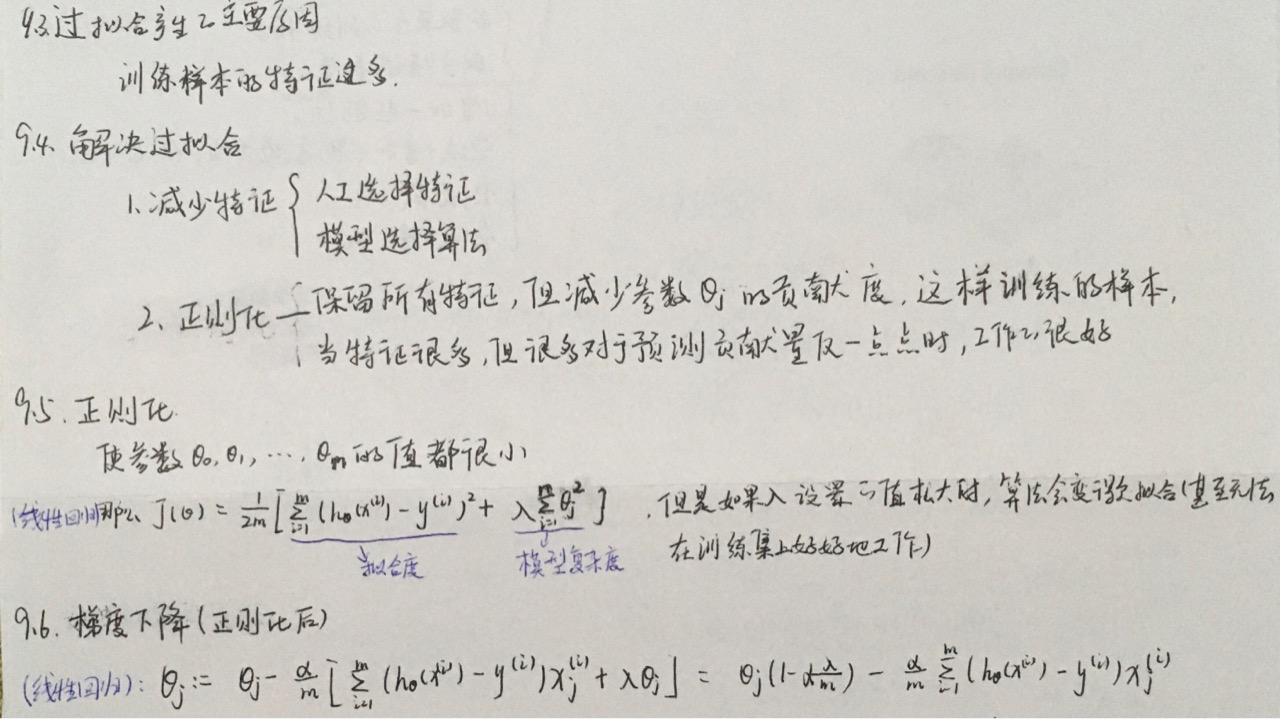 9.3 过拟合产生之主要原因
训练样本的特征过多.
9.4. 解决过拟合
1. 减少特征 { 人工选择特征
模型选择算法
2. 正则化 { 保留所有特征, 但减少参数 θj 的贡献度, 这样训练的样本,
当特征很多, 但很多对于预测贡献量仅一点点时, 工作之很好
9.5. 正则化
使参数 θ₀, θ₁, …, θₘ 的值都很小
(线性回归) 那么 J(θ) = 1/2m [ Σᵢ₌₁ᵐ (hθ(x⁽ⁱ⁾) - y⁽ⁱ⁾)² + λ Σ θj² ] , 但是如果 λ 设置之值太大时, 算法会变得欠拟合(甚至无法
拟合度 模型复杂度 在训练集上好好地工作)
9.6. 梯度下降(正则化后)
(线性回归): θj := θj - α/m [ Σᵢ₌₁ᵐ (hθ(x⁽ⁱ⁾) - y⁽ⁱ⁾) xj⁽ⁱ⁾ + λθj ] = θj(1 - α λ/m) - α/m Σᵢ₌₁ᵐ (hθ(x⁽ⁱ⁾) - y⁽ⁱ⁾) xj⁽ⁱ⁾